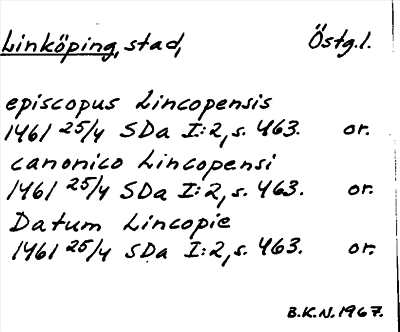 Linköping, stad, Östg.l.
episcopus Lincopensis
1461 25/4 SDa I:2, s. 463. or.
canonico Lincopensi
1461 25/4 SDa I:2, s. 463. or.
Datum Lincopie
1461 25/4 SDa I:2, s. 463. or.
B.K.N. 1967.